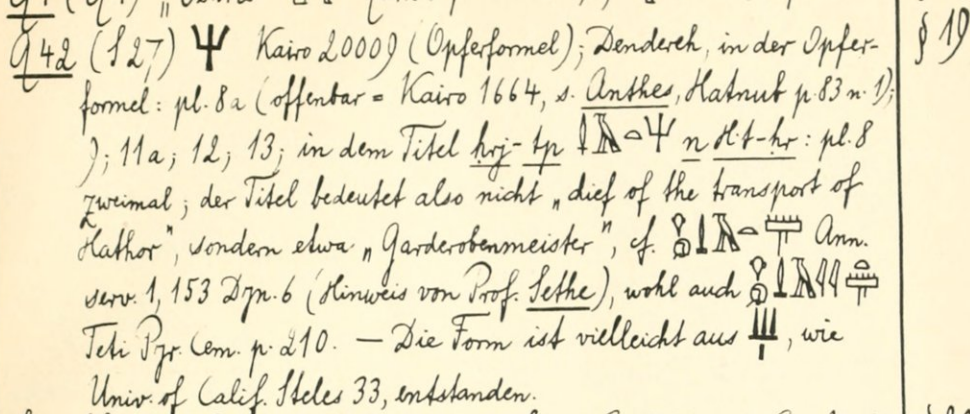 Q 42 (S 27) Kairo 20009 (Opferformel); Dendereh, in der Opfer- § 19
formel: pl. 8a (offenbar = Kairo 1664, s. Anthes, Hatnub p. 83 n. 1);
9; 11a; 12; 13; in dem Titel ḥrj-tp n Ḥ·t-ḥr: pl. 8
zweimal; der Titel bedeutet also nicht „chief of the transport of
Hathor", sondern etwa „Garderobenmeister", cf. Ann.
serv. 1, 153 Dyn. 6 (Hinweis von Prof. Sethe), wohl auch
Teti Pyr. Cem. p. 210. — Die Form ist vielleicht aus , wie
Univ. of Calif. Steles 33, entstanden.